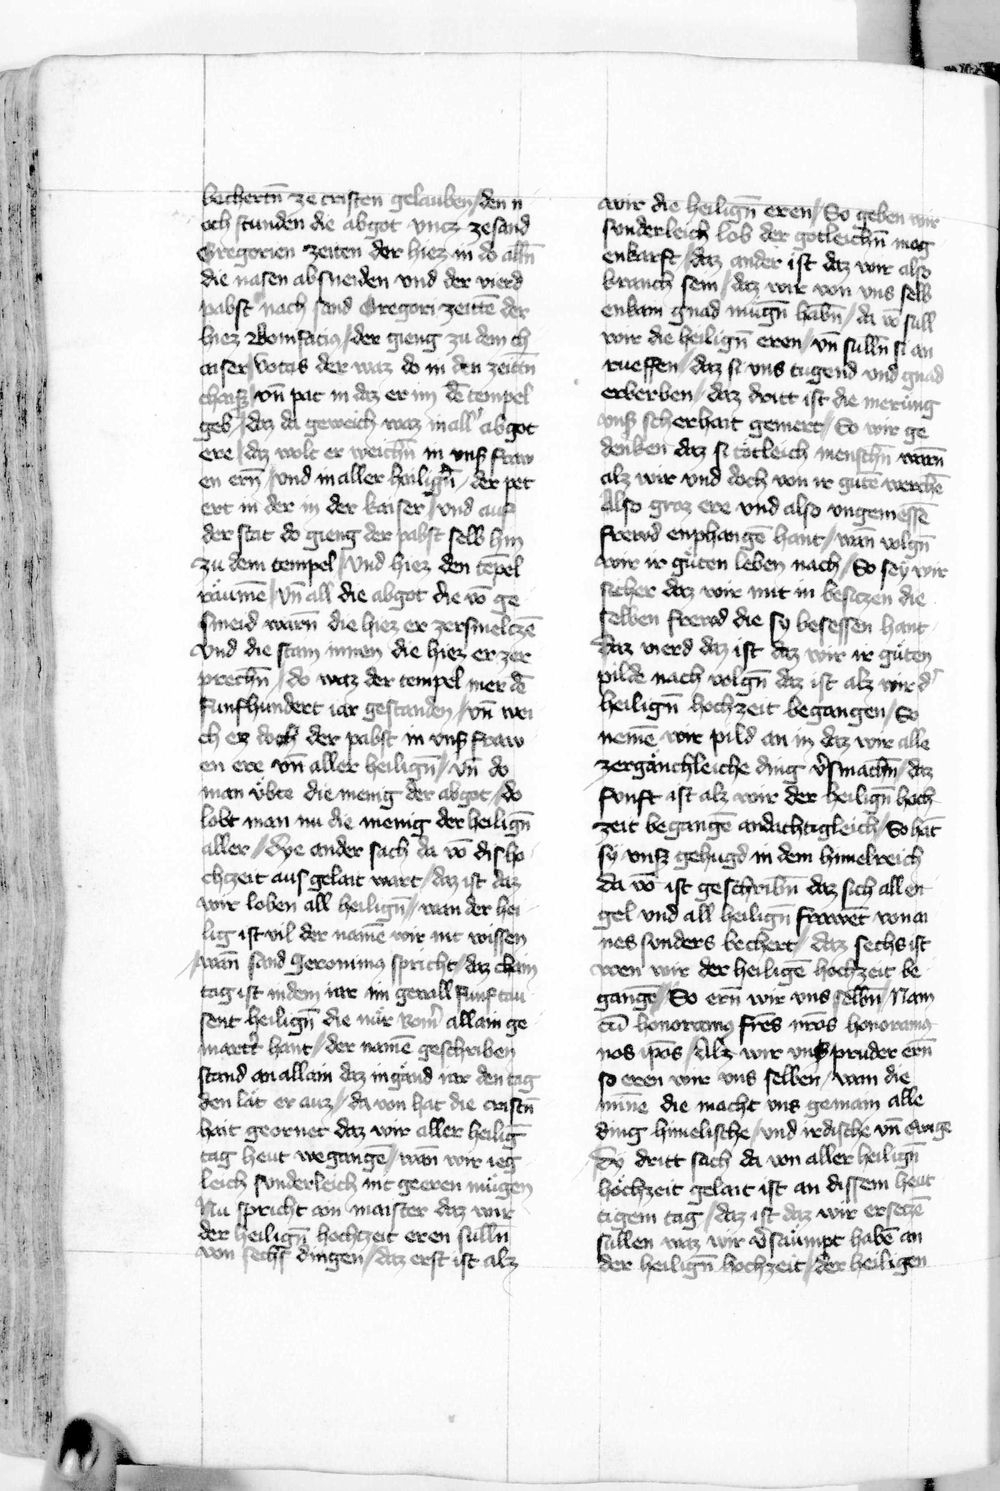 bechertn̄ ze cristen gelauben / den n
och stunden die abgot vncz zesand
Gregorien zeiten der hiez in do alln̄
die nasen absneiden vnd der vierd
pabst nach sand Gregori zeitē der
hiez Bonifacius / der gieng zu dem ch
aiser / vocas der waz do in den zeitn̄
chaisꝫ / vn̄ pat in daz er im dē tempel
geb / daz da geweich waz in allˀ abgot
ere / daz wolt er weichn̄ in vnsꝫ fraw
en ern̄ / vnd in aller heilign̄ / der pet
ert in der in der kaiser / vnd auz
der stat do gieng der pabst selb hin
zu dem tempel / vnd hiez den tēpel
räumē / vn̄ all die abgot die vō ge
smeid warn̄ die hiez er zersmelczē
vnd die stain innen die hiez er zer
prechn̄ / do waz der tempel mer dē
funfhundert iar gestanden / vn̄ wei
ch ez doch der pabst in vnsꝫ fraw
en ere vn̄ aller heilign̄ / vn̄ do
man vbte die menig der abgot / do
lobt man nu die menig der heilign̄
aller / Dye ander sach da vō dis ho
chczeit aus gelait wart / daz ist daz
wir loben all heilign̄ / wan der hei
lig ist vil der namē wir nit wissen
wan̄ sand Jeronimus spricht / daz chain
tag ist in dem iar im gevall funf tau
sent heilign̄ die nür Romˀ allain ge
martˀt hant / der namē geschriben
stand an allain daz ingand iar den tag
den lat er auz / da von hat die cristn̄
hait geornet daz wir aller heiliḡ
tag heut wegangē / wan wir ieg
leich sunderleich nit geeren mügen
Nu spricht ain maister daz wir
der heilign̄ hochczeit eren sulln̄
von sechs dingen / daz erst ist alz
wir die heilign̄ eren / So geben wir
sunderleich lob der gotleichn̄ mag
enkraft / daz ander ist daz wir also
kranch sein / daz wir von vns selb
enkain gnad mügn̄ habn̄ / da vō süll
wir die heilign̄ eren / vn̄ sulln̄ si an
rueffen / daz si vns tugend vnd gnad
erberben / daz dritt ist die merüng
vnsꝫ sicherhait gemert / So wir ge
denken daz si tötleich menschn̄ warn̄
alz wir vnd doch von ir gutē werchē
Also groz ere vnd also vngemessē
frewd enphangē hant / wan̄ volgn̄
wir ir güten leben nach / So seÿ wir
sicher daz wir mit in besiczen die
selben frewd die sy besessen hant
Daz vierd daz ist daz wir ir güten
pilde nach volgn̄ daz ist alz wir dˀ
heilign̄ hochzeit begangen / So
nemē wir pild an in daz wir alle
zergänchleiche ding vˀsmachn̄ / daz
funft ist alz wir der heilign̄ hoch
zeit begangē andachtigleich / So hāt
sÿ vnsꝫ gehugd in dem himelreich
da vō ist geschribn̄ daz sich all en
gel vnd all heilign̄ frewēt von ai
nes sunders bechert / daz sechs ist
wen wir der heiligē hochzeit be
gangē / So ern̄ wir vns selbn̄ / Nam
cū honoramus fr̄es nr̄os honoramus
nos ip̄os / Alz wir vnsꝫ pruder ern̄
so eren wir vns selben / wan die
minne die macht vns gemain alle
ding himelische / vnd irdische vn̄ ewige
Dÿ dritt sach da von aller heilign̄
höchzeit gelait ist an dissem heut
tigem tag / daz ist daz wir erseczē
sullen waz wir vˀsäumpt habē an
der heilign̄ hochzeit / der heiligen